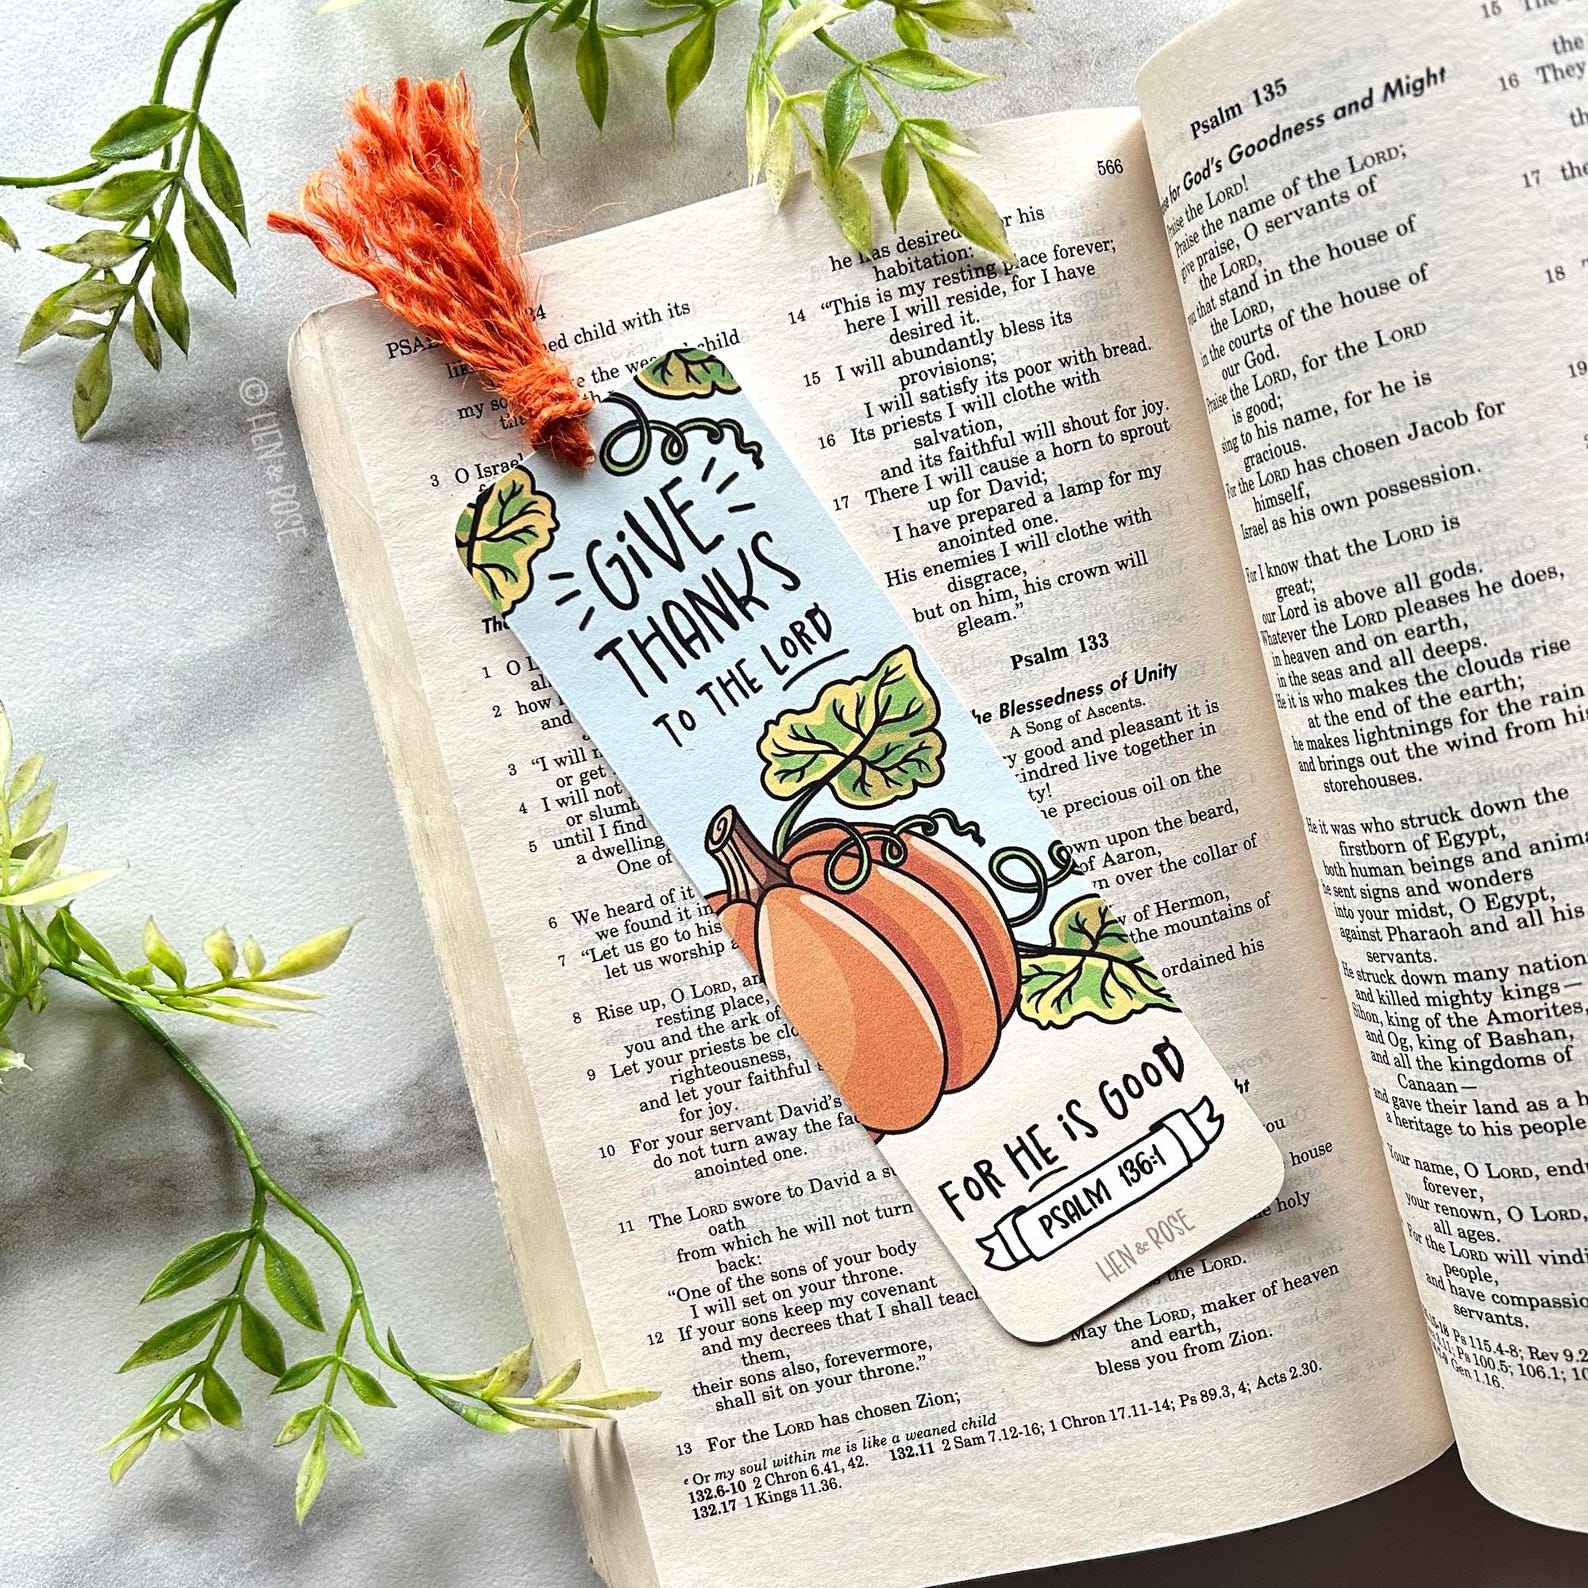 © HEN & ROSE
GIVE
THANKS
TO THE LORD
FOR HE IS GOOD
PSALM 136:1
HEN & ROSE
566
child with its
child
my
3 O Israel
1 O
2 how
and
3 "I will
or get
4 I will not
or slumb
5 until I find
a dwelling
One of
6 We heard of it
we found it in
7 "Let us go to his
let us worship
8 Rise up, O LORD,
resting place,
you and the ark of
9 Let your priests be
righteousness,
and let your faithful
for joy.
10 For your servant David's
do not turn away the
anointed one.
11 The LORD swore to David a
oath
from which he will not turn
back:
"One of the sons of your body
I will set on your throne.
12 If your sons keep my covenant
and my decrees that I shall teach
them,
their sons also, forevermore,
shall sit on your throne."
13 For the LORD has chosen Zion;
he has desired his
habitation:
14 "This is my resting place forever;
here I will reside, for I have
desired it.
15 I will abundantly bless its
provisions;
I will satisfy its poor with bread.
16 Its priests I will clothe with
salvation,
and its faithful will shout for joy.
17 There I will cause a horn to sprout
up for David;
I have prepared a lamp for my
anointed one.
His enemies I will clothe with
disgrace,
but on him, his crown will
gleam."
Psalm 133
Blessedness of Unity
A Song of Ascents.
good and pleasant it is
kindred live together in
precious oil on the
upon the beard,
of Aaron,
over the collar of
of Hermon,
the mountains of
ordained his
you
house
holy
the LORD.
May the LORD, maker of heaven
and earth,
bless you from Zion.
e Or my soul within me is like a weaned child
132.6-10 2 Chron 6.41, 42. 132.11 2 Sam 7.12-16; 1 Chron 17.11-14; Ps 89.3, 4; Acts 2.30.
132.17 1 Kings 11.36.
Psalm 135
for God's Goodness and Might
the LORD!
Praise the name of the LORD;
give praise, O servants of
the LORD,
you that stand in the house of
the LORD,
in the courts of the house of
our God.
Praise the LORD, for the LORD
is good;
sing to his name, for he is
gracious.
For the LORD has chosen Jacob for
himself,
Israel as his own possession.
For I know that the LORD is
great;
our Lord is above all gods.
Whatever the LORD pleases he does,
in heaven and on earth,
in the seas and all deeps.
He it is who makes the clouds rise
at the end of the earth;
he makes lightnings for the rain
and brings out the wind from his
storehouses.
He it was who struck down the
firstborn of Egypt,
both human beings and
he sent signs and wonders
into your midst, O Egypt,
against Pharaoh and all his
servants.
He struck down many
and killed mighty kings—
Sihon, king of the Amorites,
and Og, king of Bashan,
and all the kingdoms of
Canaan—
and gave their land as a
a heritage to his people
Your name, O LORD,
forever,
your renown, O LORD,
all ages.
For the LORD will
people,
and have
servants.
Ps 115.4-8; Rev
Ps 100.5; 106.1;
Gen 1.16.
15
the
16 They
17 the
18
19